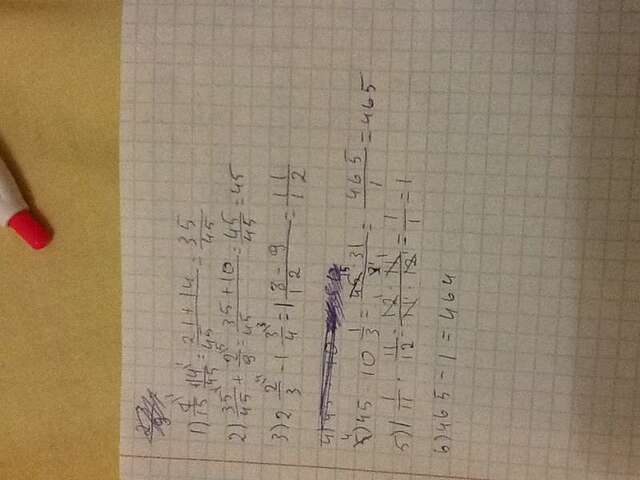 1) 7/15 + 14/45 = 21+14/45 = 35/45
2) 35/45 + 2/9 = 35+10/45 = 45/45 = 45
3) 2 2/3 - 1 3/4 = 1 8-9/12 = 11/12
4) 45 10 1/3 = 45 · 31/3 = 465/1 = 465
5) 1 1/11 · 11/12 = 12 · 11/11 · 12 = 1/1 = 1
6) 465 - 1 = 464